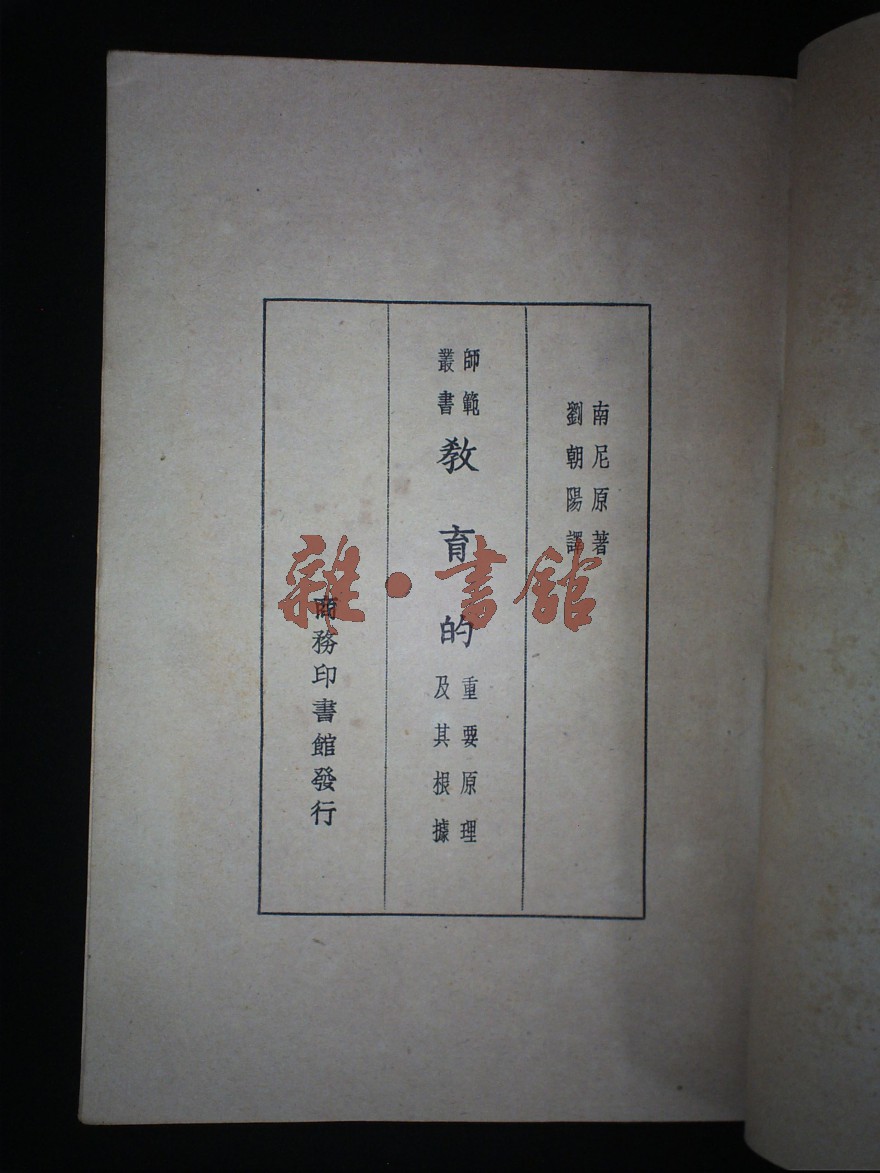 南尼原著
劉朝陽譯
師範
叢書
教育的
重要原理
及其根據
商務印書館發行
雜·書館